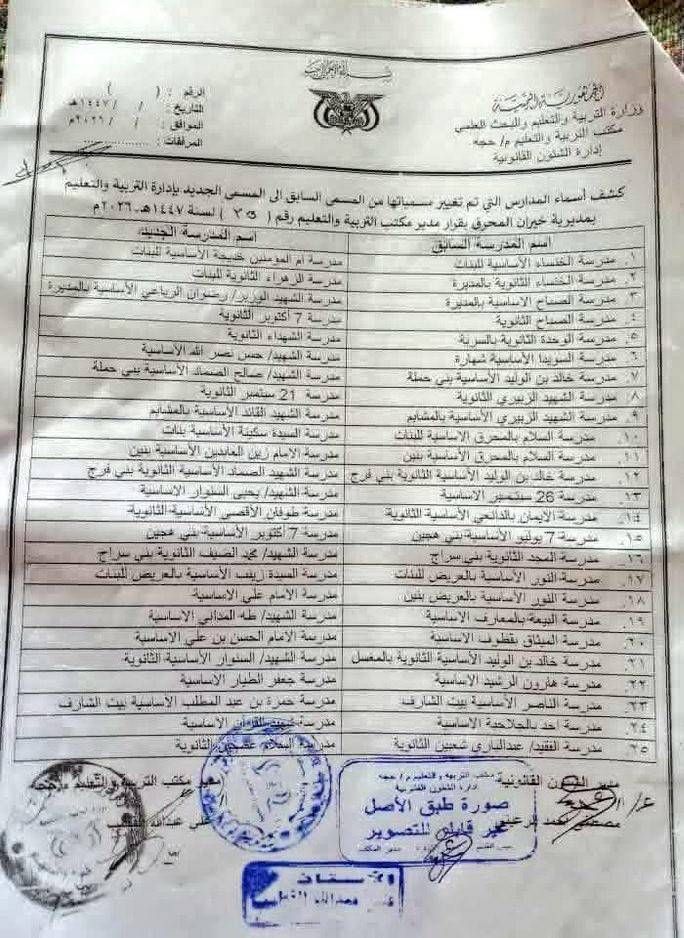 بسم الله الرحمن الرحيم
الجمهورية اليمنية
وزارة التربية والتعليم والبحث العلمي
مكتب التربية والتعليم م/ حجه
إدارة الشئون القانونية
الرقم : ( )
التاريخ: / / ١٤٤٧هـ
الموافق : / / ٢٠٢٦م
المرفقات: ..............
كشف أسماء المدارس التي تم تغيير مسمياتها من المسمى السابق الى المسمى الجديد بإدارة التربية والتعليم
بمديرية خيران المحرق بقرار مدير مكتب التربية والتعليم رقم ( ٣٥ ) لسنة ١٤٤٧هـ-٢٠٢٦م
اسم المدرسة السابق اسم المدرسة الجديد
١. مدرسة الخنساء الأساسية للبنات مدرسة ام المؤمنين خديجة الأساسية للبنات
٢. مدرسة الخنساء الثانوية بالمديرة مدرسة الزهراء الثانوية للبنات
٣. مدرسة الصباح الاساسية بالمديرة مدرسة الشهيد الوزير/ رضوان الرباعي الأساسية بالمديرة
٤. مدرسة الصباح الثانوية مدرسة 7 أكتوبر الثانوية
٥. مدرسة الوحدة الثانوية بالسرية مدرسة الشهداء الثانوية
٦. مدرسة السويدا الأساسية شهارة مدرسة الشهيد/ حسن نصر الله الأساسية
٧. مدرسة خالد بن الوليد الأساسية بني حملة مدرسة الشهيد/ صالح الصماد الأساسية بني حملة
٨. مدرسة الشهيد الزبيري الثانوية مدرسة 21 سبتمبر الثانوية
٩. مدرسة الشهيد الزبيري الأساسية بالمشايم مدرسة الشهيد القائد الأساسية بالمشايم
١٠. مدرسة السلام بالمحرق الاساسية للبنات مدرسة السيدة سكينة الأساسية بنات
١١. مدرسة السلام بالمحرق الأساسية بنين مدرسة الامام زين العابدين الأساسية بنين
١٢. مدرسة خالد بن الوليد الأساسية الثانوية بني فرج مدرسة الشهيد الصماد الأساسية الثانوية بني فرج
١٣. مدرسة 26 سبتمبر الاساسية مدرسة الشهيد/ يحيى السنوار الاساسية
١٤. مدرسة الايمان بالدانعي الأساسية الثانوية مدرسة طوفان الأقصى الأساسية الثانوية
١٥. مدرسة 7 يوليو الأساسية بني هجين مدرسة 7 أكتوبر الأساسية بني هجين
١٦. مدرسة المجد الثانوية بني سراج مدرسة الشهيد/ محمد الضيف الثانوية بني سراج
١٧. مدرسة النور الأساسية بالعريض للبنات مدرسة السيدة زينب الأساسية بالعريض للبنات
١٨. مدرسة النور الأساسية بالعريض بنين مدرسة الامام علي الأساسية
١٩. مدرسة النيعة بالمعارف الاساسية مدرسة الشهيد/ طه المداني الاساسية
٢٠. مدرسة الميثاق بقطوف الاساسية مدرسة الامام الحسن بن علي الأساسية
٢١. مدرسة خالد بن الوليد الأساسية الثانوية بالمغسل مدرسة الشهيد/ السنوار الأساسية الثانوية
٢٢. مدرسة هارون الرشيد الاساسية مدرسة جعفر الطيار الاساسية
٢٣. مدرسة الناصر الأساسية بيت الشارف مدرسة حمزة بن عبد المطلب الاساسية بيت الشارف
٢٤. مدرسة احد بالجلاحدة الاساسية مدرسة القران الاساسية
٢٥. مدرسة الفقيد/ عبدالباري شعبين الثانوية مدرسة الثانوية
مدير الشئون القانونية
مدير مكتب التربية والتعليم م/حجه
مكتب التربية والتعليم م/ حجه
إدارة الشئون القانونية
صورة طبق الأصل
غير قابلة للتصوير